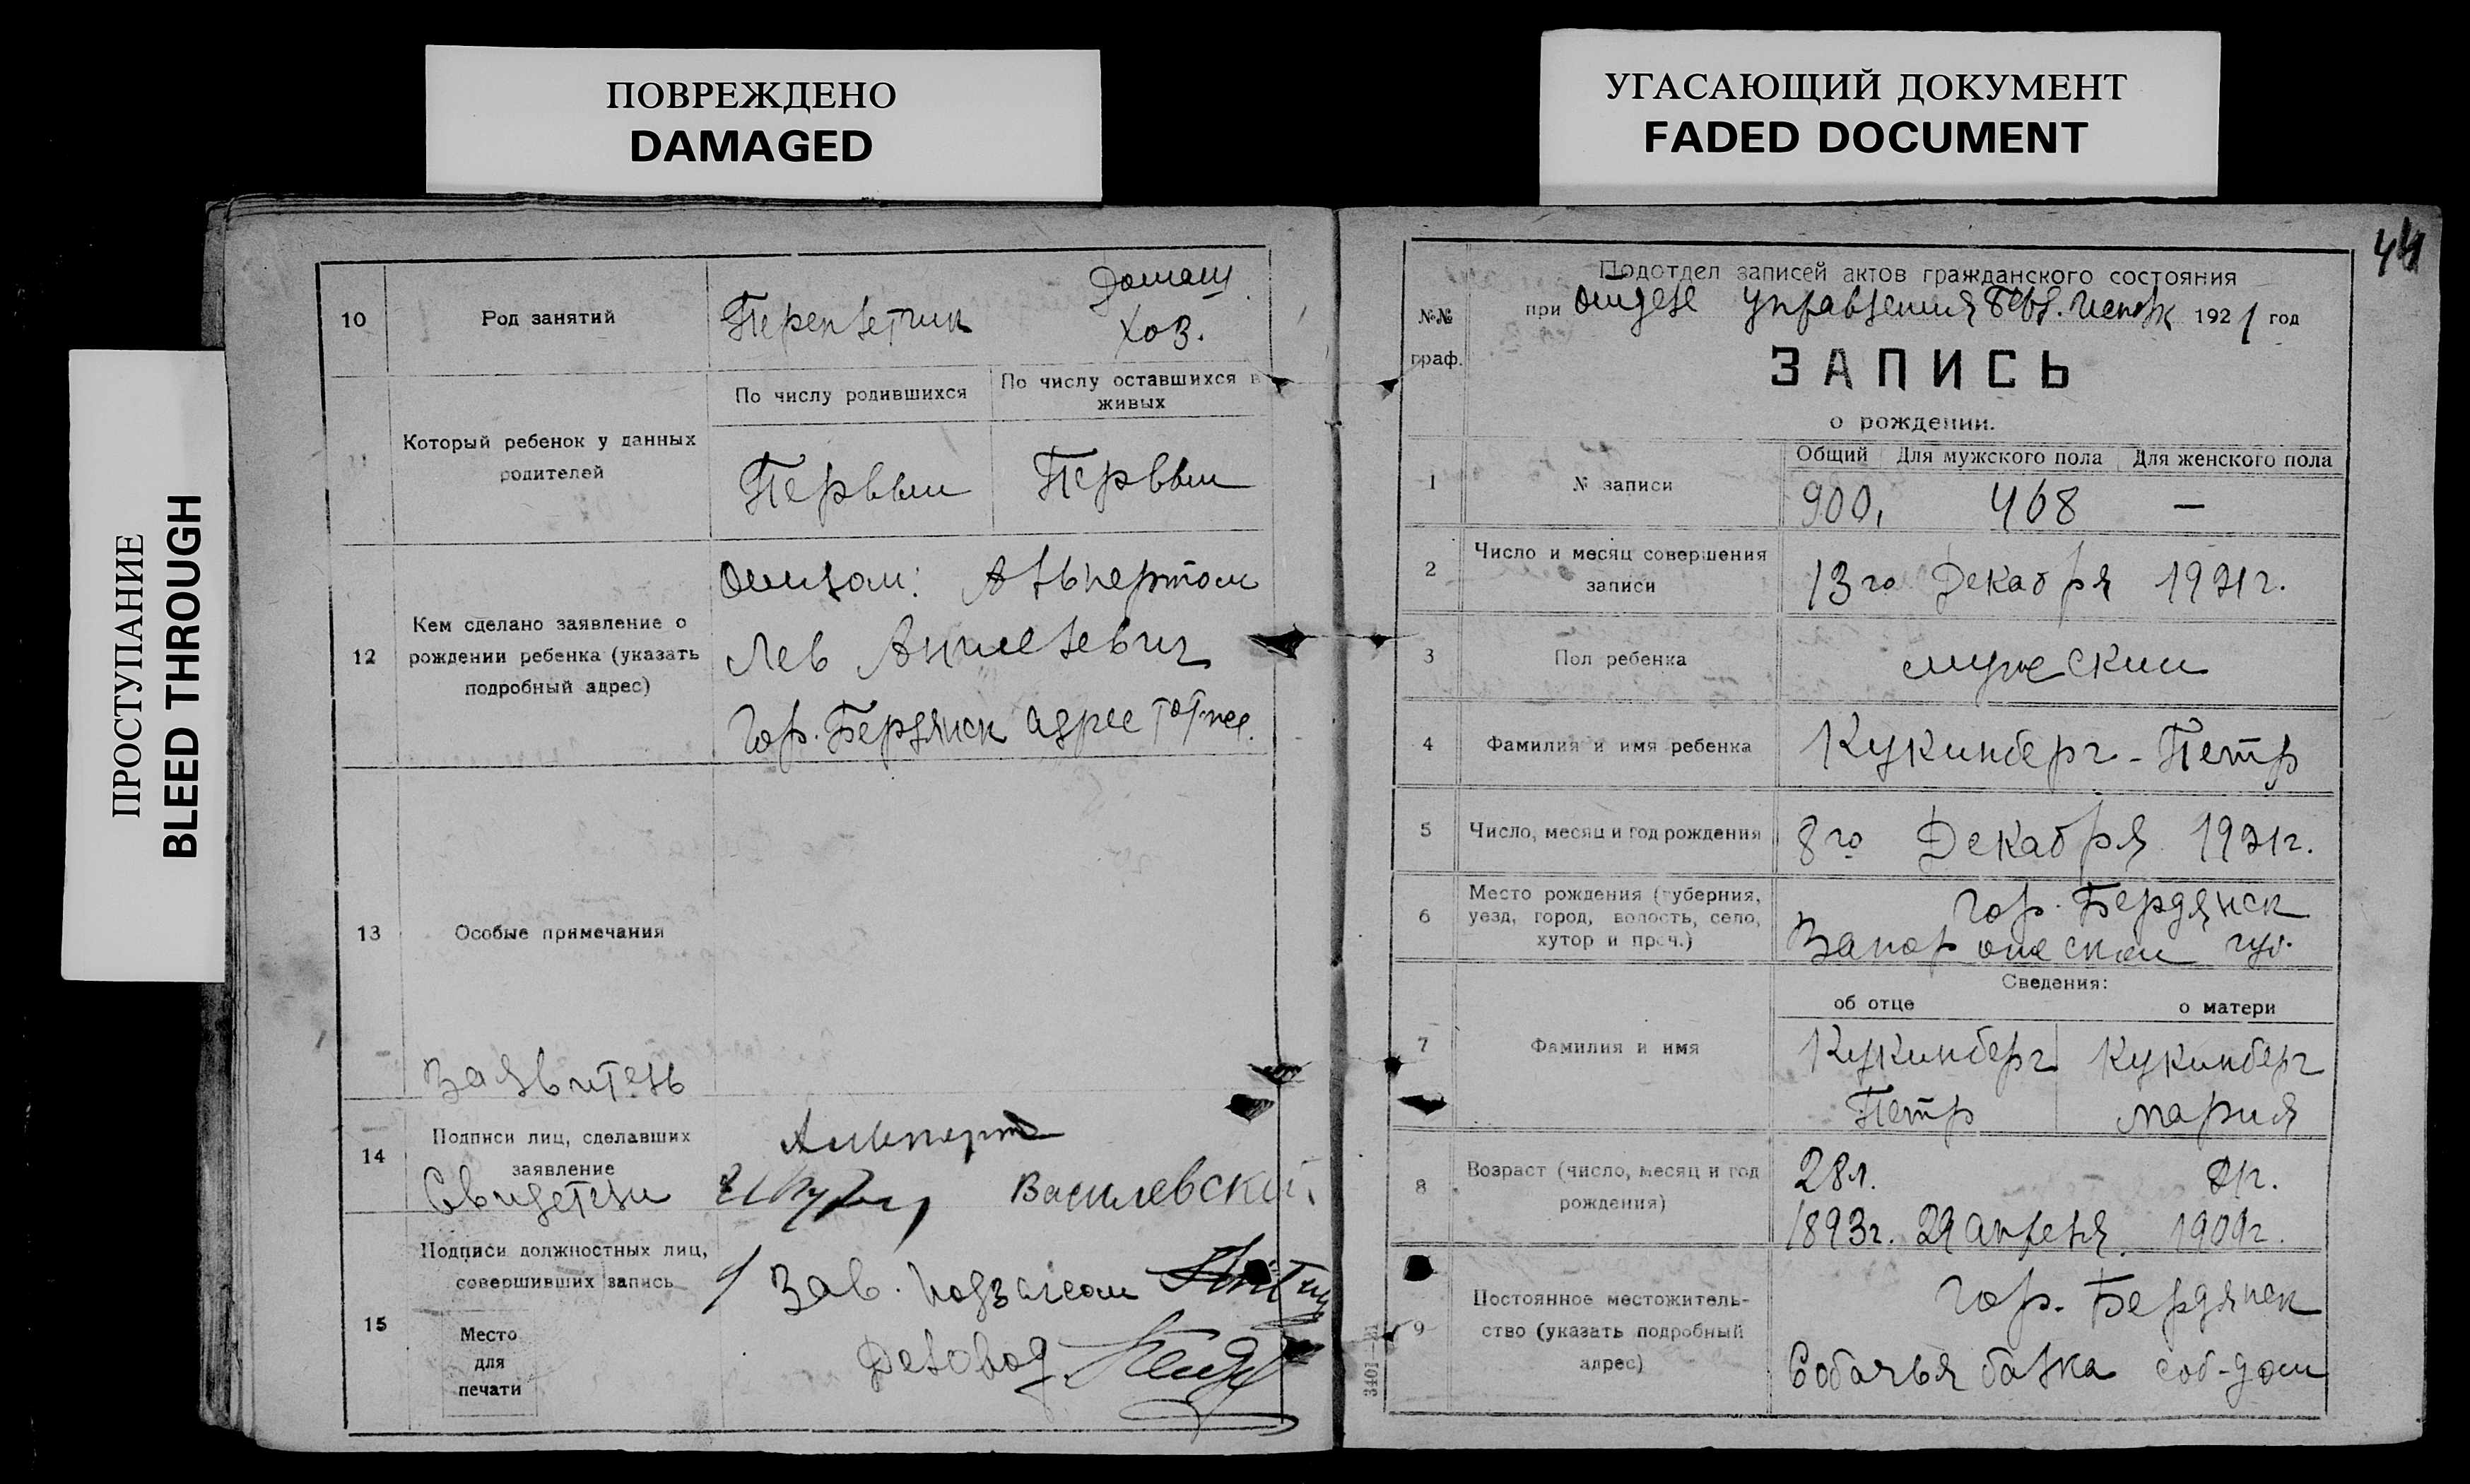 ПОВРЕЖДЕНО
DAMAGED
УГАСАЮЩИЙ ДОКУМЕНТ
FADED DOCUMENT
ПРОСТУПАНИЕ
BLEED THROUGH
10
Род занятий
Переплетчик
Домаш.
хоз.
11
Который ребенок у данных
родителей
По числу родившихся
По числу оставшихся в
живых
Первым
Первым
12
Кем сделано заявление о
рождении ребенка (указать
подробный адрес)
Альпертом
Лев
Гор. Бердянск адрес тот же.
13
Особые примечания
Заявитель
14
Подписи лиц, сделавших
заявление
Свидетели
Альперт
Василевский
15
Подписи должностных лиц,
совершивших запись
Зав. подзагсом
Деловод
Место
для
печати
44
№№
граф.
Подотдел записей актов гражданского состояния
при отделе управления Берд. 1921 год
ЗАПИСЬ
о рождении.
1
№ записи
Общий Для мужского пола Для женского пола
900, 468 —
2
Число и месяц совершения
записи
13го Декабря 1921г.
3
Пол ребенка
мужский
4
Фамилия и имя ребенка
Кукинберг - Петр
5
Число, месяц и год рождения
8го Декабря 1921г.
6
Место рождения (губерния,
уезд, город, волость, село,
хутор и проч.)
Гор. Бердянск
Запорожской губ.
Сведения:
об отце
о матери
7
Фамилия и имя
Кукинберг
Петр
Кукинберг
Мария
8
Возраст (число, месяц и год
рождения)
28л.
1893г. 29 апреля
1909г.
9
Постоянное местожитель-
ство (указать подробный
адрес)
Гор. Бердянск
Собачья балка соб-дом
3401—21